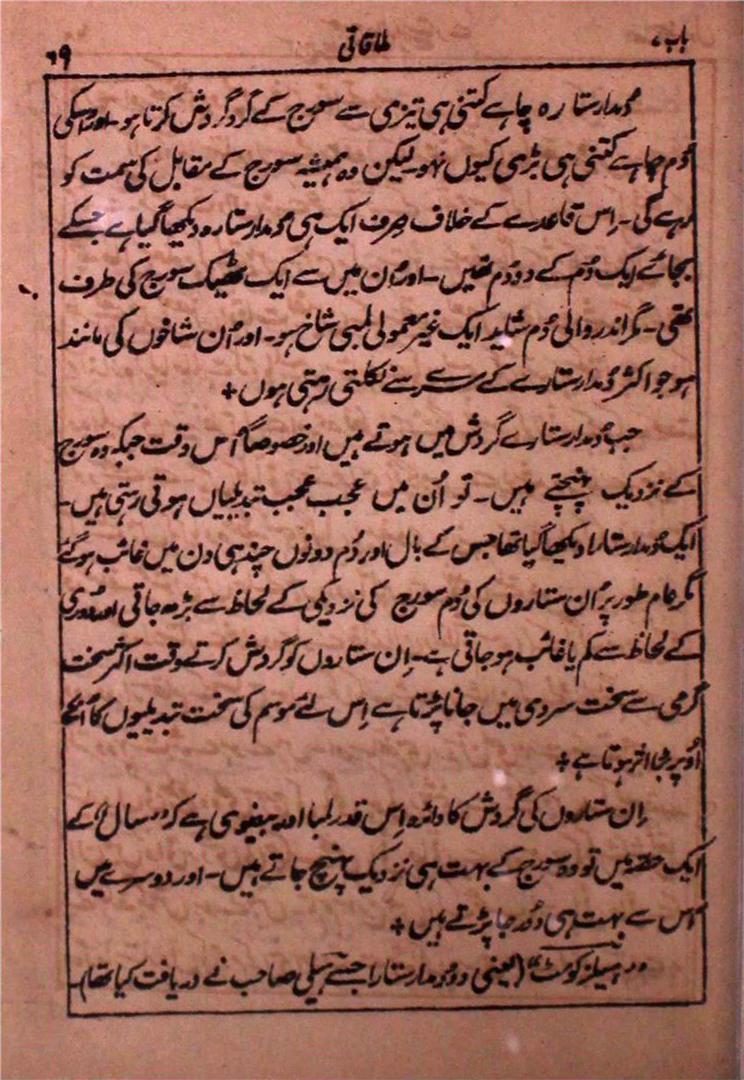 باب ۷
ملاقاتی
۶۹
دُمدار ستارہ چاہے کتنی ہی تیزی سے سورج کے گرد گردش کرتا ہو۔ اور اُسکی
دُم چاہے کتنی ہی بڑی کیوں نہو۔ لیکن وہ ہمیشہ سورج کے مقابل کی سمت کو
رہے گی۔ اِس قاعدے کے خلاف صِرف ایک ہی دُمدار ستارہ دیکھا گیا ہے جسکے
بجائے ایک دُم کے دو دُم تھیں۔ اور اُن میں سے ایک ٹھیک سورج کی طرف
تھی۔ مگر اندر والی دُم شاید ایک غیر معمولی لمبی شاخ ہو۔ اور اُن شاخوں کی مانند
ہو جو اکثر دُمدار ستارے کے سرے سے نکلتی رہتی ہوں +
جب دُمدار ستارے گردش میں ہوتے ہیں اور خصوصاً اُس وقت جبکہ وہ سورج
کے نزدیک پہنچتے ہیں۔ تو اُن میں عجب عجب تبدیلیاں ہوتی رہتی ہیں۔
ایک دُمدار ستارا دیکھا گیا تھا جس کے بال اور دُم دونوں چند ہی دن میں غائب ہو گئے
مگر عام طور پر اُن ستاروں کی دُم سورج کی نزدیکی کے لحاظ سے بڑھ جاتی اور دُوری
کے لحاظ سے کم یا غائب ہو جاتی ہے۔ اِن ستاروں کو گردش کرتے وقت اکثر سخت
گرمی سے سخت سردی میں جانا پڑتا ہے اِس لئے موسم کی سخت تبدیلیوں کا اُنکے
اُوپر بڑا اثر ہوتا ہے +
اِن ستاروں کی گردش کا دائرہ اِس قدر لمبا اور بیضوی ہے کہ "سال" کے
ایک حصّہ میں تو وہ سورج کے بہت ہی نزدیک پہنچ جاتے ہیں۔ اور دوسرے میں
اُس سے بہت ہی دُور جا پڑتے ہیں +
"ہیلیز کومٹ" (یعنی وہ دُمدار ستارا جسے ہیلی صاحب نے دریافت کیا تھا)۔